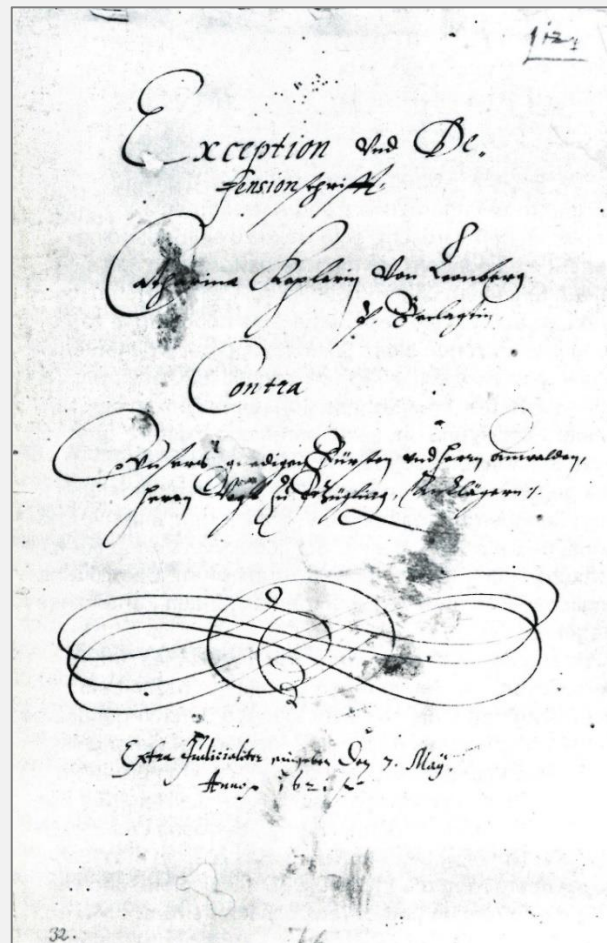 Exception Vnd De-
fensionschrifft.
Catharina Keplerin Von Leonberg.
P. Beclagtin
Contra
Vnsers gnedigen Fürsten vnd herrn Anwalden,
herrn Vogt zu Gügling, Anklägern
Extra Judicialiter eingeben Den 7. May
Anno 162
32.